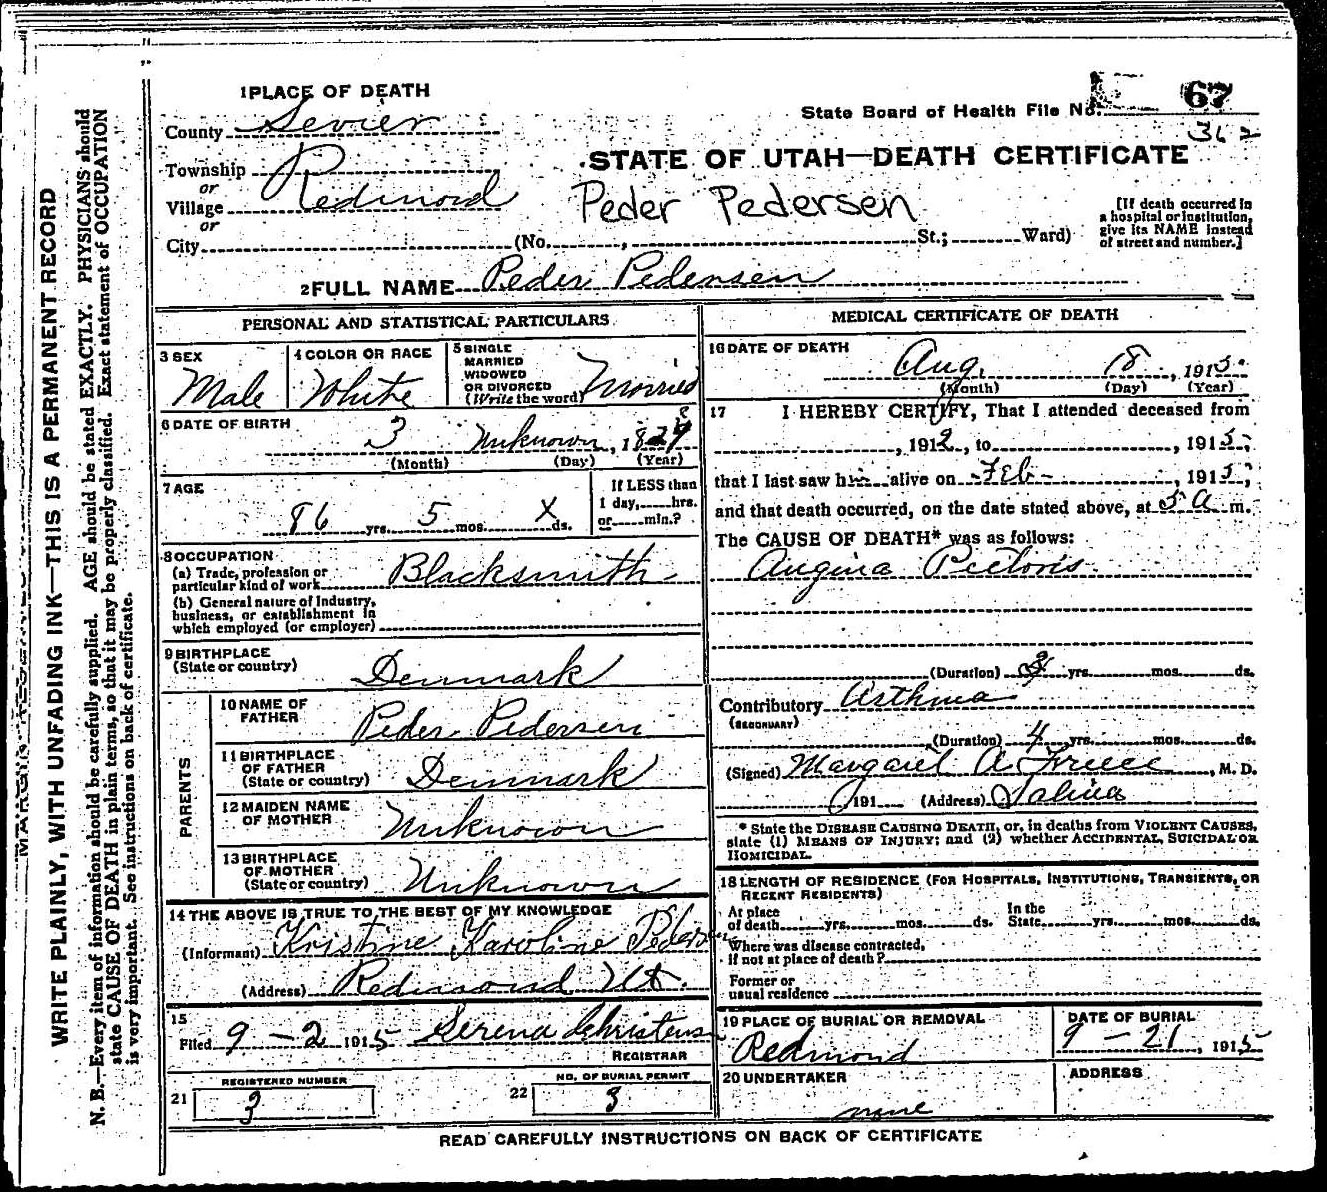 1 PLACE OF DEATH
County Sevier
State Board of Health File No. 67
362
Township
or
Village Redmond
or
City (No. , St.; Ward)
STATE OF UTAH—DEATH CERTIFICATE
Peder Pedersen
[If death occurred in
a hospital or institution,
give its NAME instead
of street and number.]
2 FULL NAME Peder Pedersen
PERSONAL AND STATISTICAL PARTICULARS
3 SEX
Male
4 COLOR OR RACE
White
5 SINGLE
MARRIED
WIDOWED
OR DIVORCED
(Write the word) Married
6 DATE OF BIRTH
3 Unknown, 182
(Month) (Day) (Year)
7 AGE
86 yrs. 5 mos. X ds.
If LESS than
1 day, hrs.
or min.?
8 OCCUPATION
(a) Trade, profession or
particular kind of work Blacksmith
(b) General nature of Industry,
business, or establishment in
which employed (or employer)
9 BIRTHPLACE
(State or country) Denmark
PARENTS
10 NAME OF
FATHER Peder Pedersen
11 BIRTHPLACE
OF FATHER
(State or country) Denmark
12 MAIDEN NAME
OF MOTHER Unknown
13 BIRTHPLACE
OF MOTHER
(State or country) Unknown
14 THE ABOVE IS TRUE TO THE BEST OF MY KNOWLEDGE
(Informant) Kristine Karoline Pedersen
(Address) Redmond Ut.
15
Filed 9-2 1915 Serena Christensen
REGISTRAR
21 REGISTERED NUMBER
3
22 NO. OF BURIAL PERMIT
3
MEDICAL CERTIFICATE OF DEATH
16 DATE OF DEATH
Aug. 18, 1915.
(Month) (Day) (Year)
17 I HEREBY CERTIFY, That I attended deceased from
, 1912, to , 1915;
that I last saw him alive on Feb , 1915;
and that death occurred, on the date stated above, at 5 a m.
The CAUSE OF DEATH* was as follows:
Angina Pectoris
(Duration) 3 yrs. mos. ds.
Contributory Asthma
(SECONDARY)
(Duration) 4 yrs. mos. ds.
(Signed) Margaret A. Freece, M. D.
, 191 (Address) Salina
* State the DISEASE CAUSING DEATH, or, in deaths from VIOLENT CAUSES,
state (1) MEANS OF INJURY; and (2) whether ACCIDENTAL, SUICIDAL OR
HOMICIDAL.
18 LENGTH OF RESIDENCE (FOR HOSPITALS, INSTITUTIONS, TRANSIENTS, OR
RECENT RESIDENTS)
At place
of death yrs. mos. ds.
In the
State yrs. mos. ds.
Where was disease contracted,
if not at place of death?
Former or
usual residence
19 PLACE OF BURIAL OR REMOVAL
Redmond
DATE OF BURIAL
9-21, 1915
20 UNDERTAKER
none
ADDRESS
READ CAREFULLY INSTRUCTIONS ON BACK OF CERTIFICATE
WRITE PLAINLY, WITH UNFADING INK—THIS IS A PERMANENT RECORD
N. B.—Every item of information should be carefully supplied. AGE should be stated EXACTLY. PHYSICIANS should
state CAUSE OF DEATH in plain terms, so that it may be properly classified. Exact statement of OCCUPATION
is very important. See instructions on back of certificate.